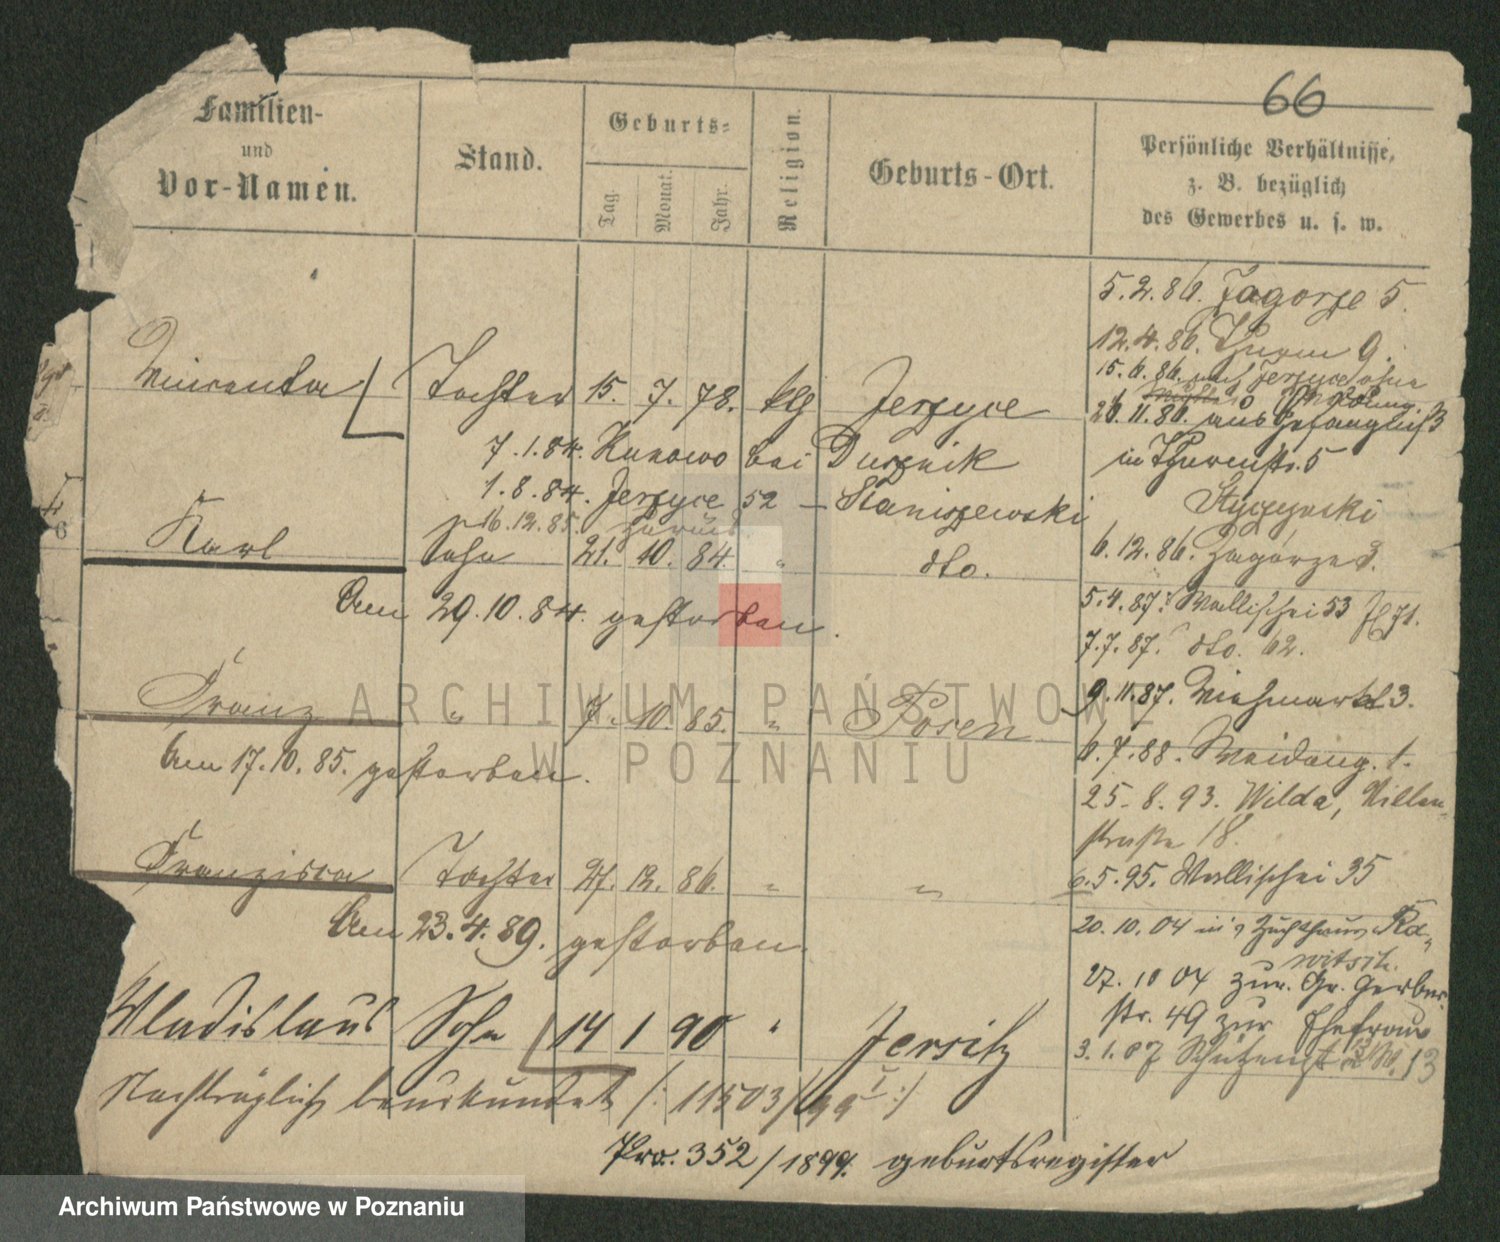 66
Familien-
und
Vor-Namen.
Stand.
Geburts-
Tag.
Monat.
Jahr.
Religion.
Geburts-Ort.
Persönliche Verhältnisse,
z. B. bezüglich
des Gewerbes u. s. w.
5.2.86. Zagorze 5.
12.4.86. Thurm 9.
15.6.86. nach Jerzyce ohne
Meldung.
Tochter 15. 7. 78. klg Jerzyce
26.11.86. aus Gefängniß
7.1.84. Kunowo bei Duschnik
in Thurmstr. 5
1.8.84. Jerzyce 52 – Staniszewski
16.12.85. zurück
Karl Sohn 21. 10. 84. " dto.
6.12.86. Zagorze 3.
Am 29.10.84. gestorben.
5.4.87. Wallischei 53
7.7.87. dto. 62.
9.11.87. Viehmarkt 3.
Franz " 7. 10. 85. " Posen
Am 17.10.85. gestorben.
25.8.93. Wilda, Villen-
straße 18.
Franzisca Tochter 27. 12. 86. " "
6.5.95. Wallischei 35
Am 23.4.89. gestorben.
20.10.04 in's Zuchthaus Ra-
witsch.
27.10 04 zur. Gr. Gerber-
str. 49 zur Ehefrau
Wladislaus Sohn 14 1 90 " Jersitz
3.1.07
Nachträglich beurkundet
Nro. 352/1899. geburtsregister
ARCHIWUM PAŃSTWOWE
W POZNANIU
Archiwum Państwowe w Poznaniu